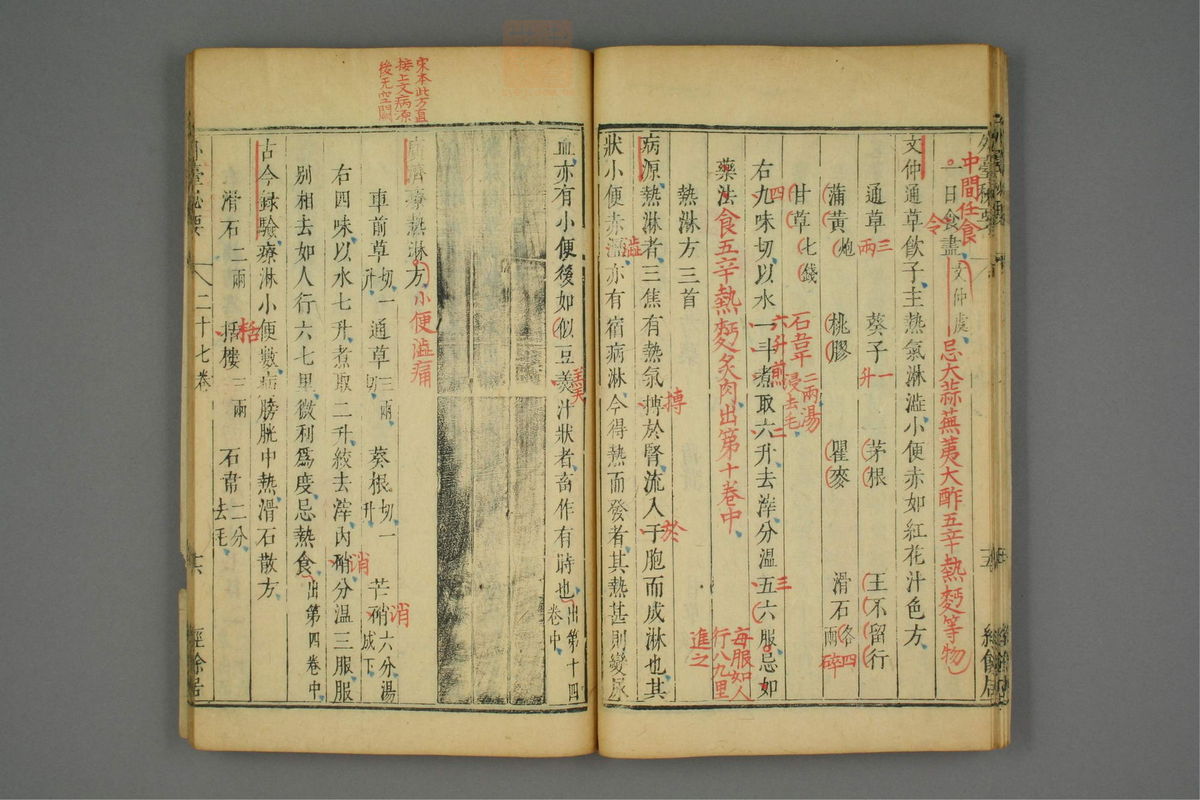 一日食盡 文仲處
中間任食
令
忌大蒜蕪荑大酢五辛熱麪等物
文仲通草飲子主熱氣淋澁小便赤如紅花汁色方
通草 三兩 葵子 一升 茅根 王不留行
蒲黄 炮 桃膠 瞿麥 滑石 各四兩 碎
甘草 七錢
石韋 三兩湯浸去毛
右九味切以水一斗煮取六升去滓分温五六服忌如
四
六升煎
二
三
每服如人行八九里進之
藥法
食五辛熱麪炙肉出第十卷中
熱淋方三首
病源熱淋者三焦有熱氣摶於腎流入于胞而成淋也其
搏
於
狀小便赤澁亦有宿病淋今得熱而發者其熱甚則變尿
澁
血亦有小便後如似豆羹汁狀者畜作有時也 出第十四卷中
羹
宋本此方直接上文病源後无空闕
廣濟療熱淋方
小便澁痛
車前草 切一升 通草 三兩切 葵根 切一升 芒硝 六分湯成下
消
右四味以水七升煮取二升絞去滓内硝分温三服服
消
别相去如人行六七里微利爲度忌熱食 出第四卷中
古今録驗療淋小便數病膀胱中熱滑石散方
滑石 二兩 括樓 三兩 石韋 二分去毛
栝
二十七卷
十六
經餘居